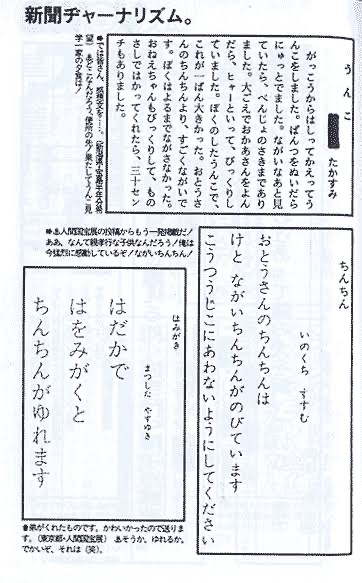 新聞ヂャーナリズム。
うんこ
たかすみ
がっこうからはしってかえってう
んこをしました。ぱんつをぬいだら
にゅっとでました。ながいなあと見
ていたら、べんじょのさきまであり
ました。大ごえでおかあさんをよん
だら、ヒャーといって、びっくりし
ていました。ぼくのしたうんこで、
これが一ばん大きかった。おとうさ
んのちんちんより、すごくながいで
す。ぼくはよるまでながさなかった。
おねえちゃんもびっくりして、もの
さしではかってくれたら、三十セン
チもありました。
では皆さん、感想文を……。
ちんちん
いのくち すすむ
おとうさんのちんちんは
けど ながいちんちんがのびています
こうつうじこにあわないようにしてください
人間国宝展の投稿からもう一発掲載だ!
ああ、なんて親孝行な子供なんだろう!俺は
今猛烈に感動しているぞ!ながいちんちん!
はみがき
まつした やすゆき
はだかで
はをみがくと
ちんちんがゆれます
弟がくれたものです。かわいかったので送りま
す。(東京都・人間国宝展)そうか、ゆれるか。
でかいぞ、それは(笑)。